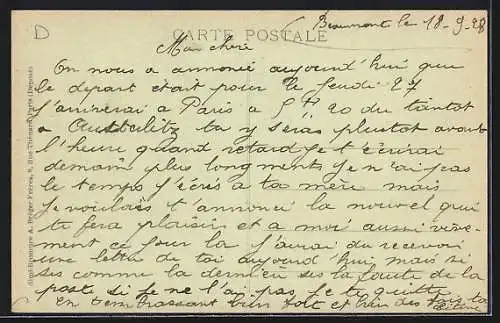 D
CARTE POSTALE
Beaumont le 18-9-28
Mon cheri
On nous a annoncé aujourd'hui que
le depart était pour le Jeudi 27
J'arriverai a Paris a 5H 20 du tantot
a Austerlitz ta y seras plustot avant
l'heure quand retard je t'écrirai
demain plus longments Je n'ai pas
le temps J'écris a ta mère mais
Je voulais t'annoncé la nouvel qui
te fera plaisir et a moi aussi vive-
ment ce jour la J'aurai du recevoir
une lettre de toi aujourd'hui mais si
ses comme la dernière ses la faute de la
poste si Je ne l'ai pas Je te quitte
en t'embrassant bien fort et bien des fois ta
Grand Bazar A. Berger Frères, 9, Rue Thénard, Paris (Déposé)